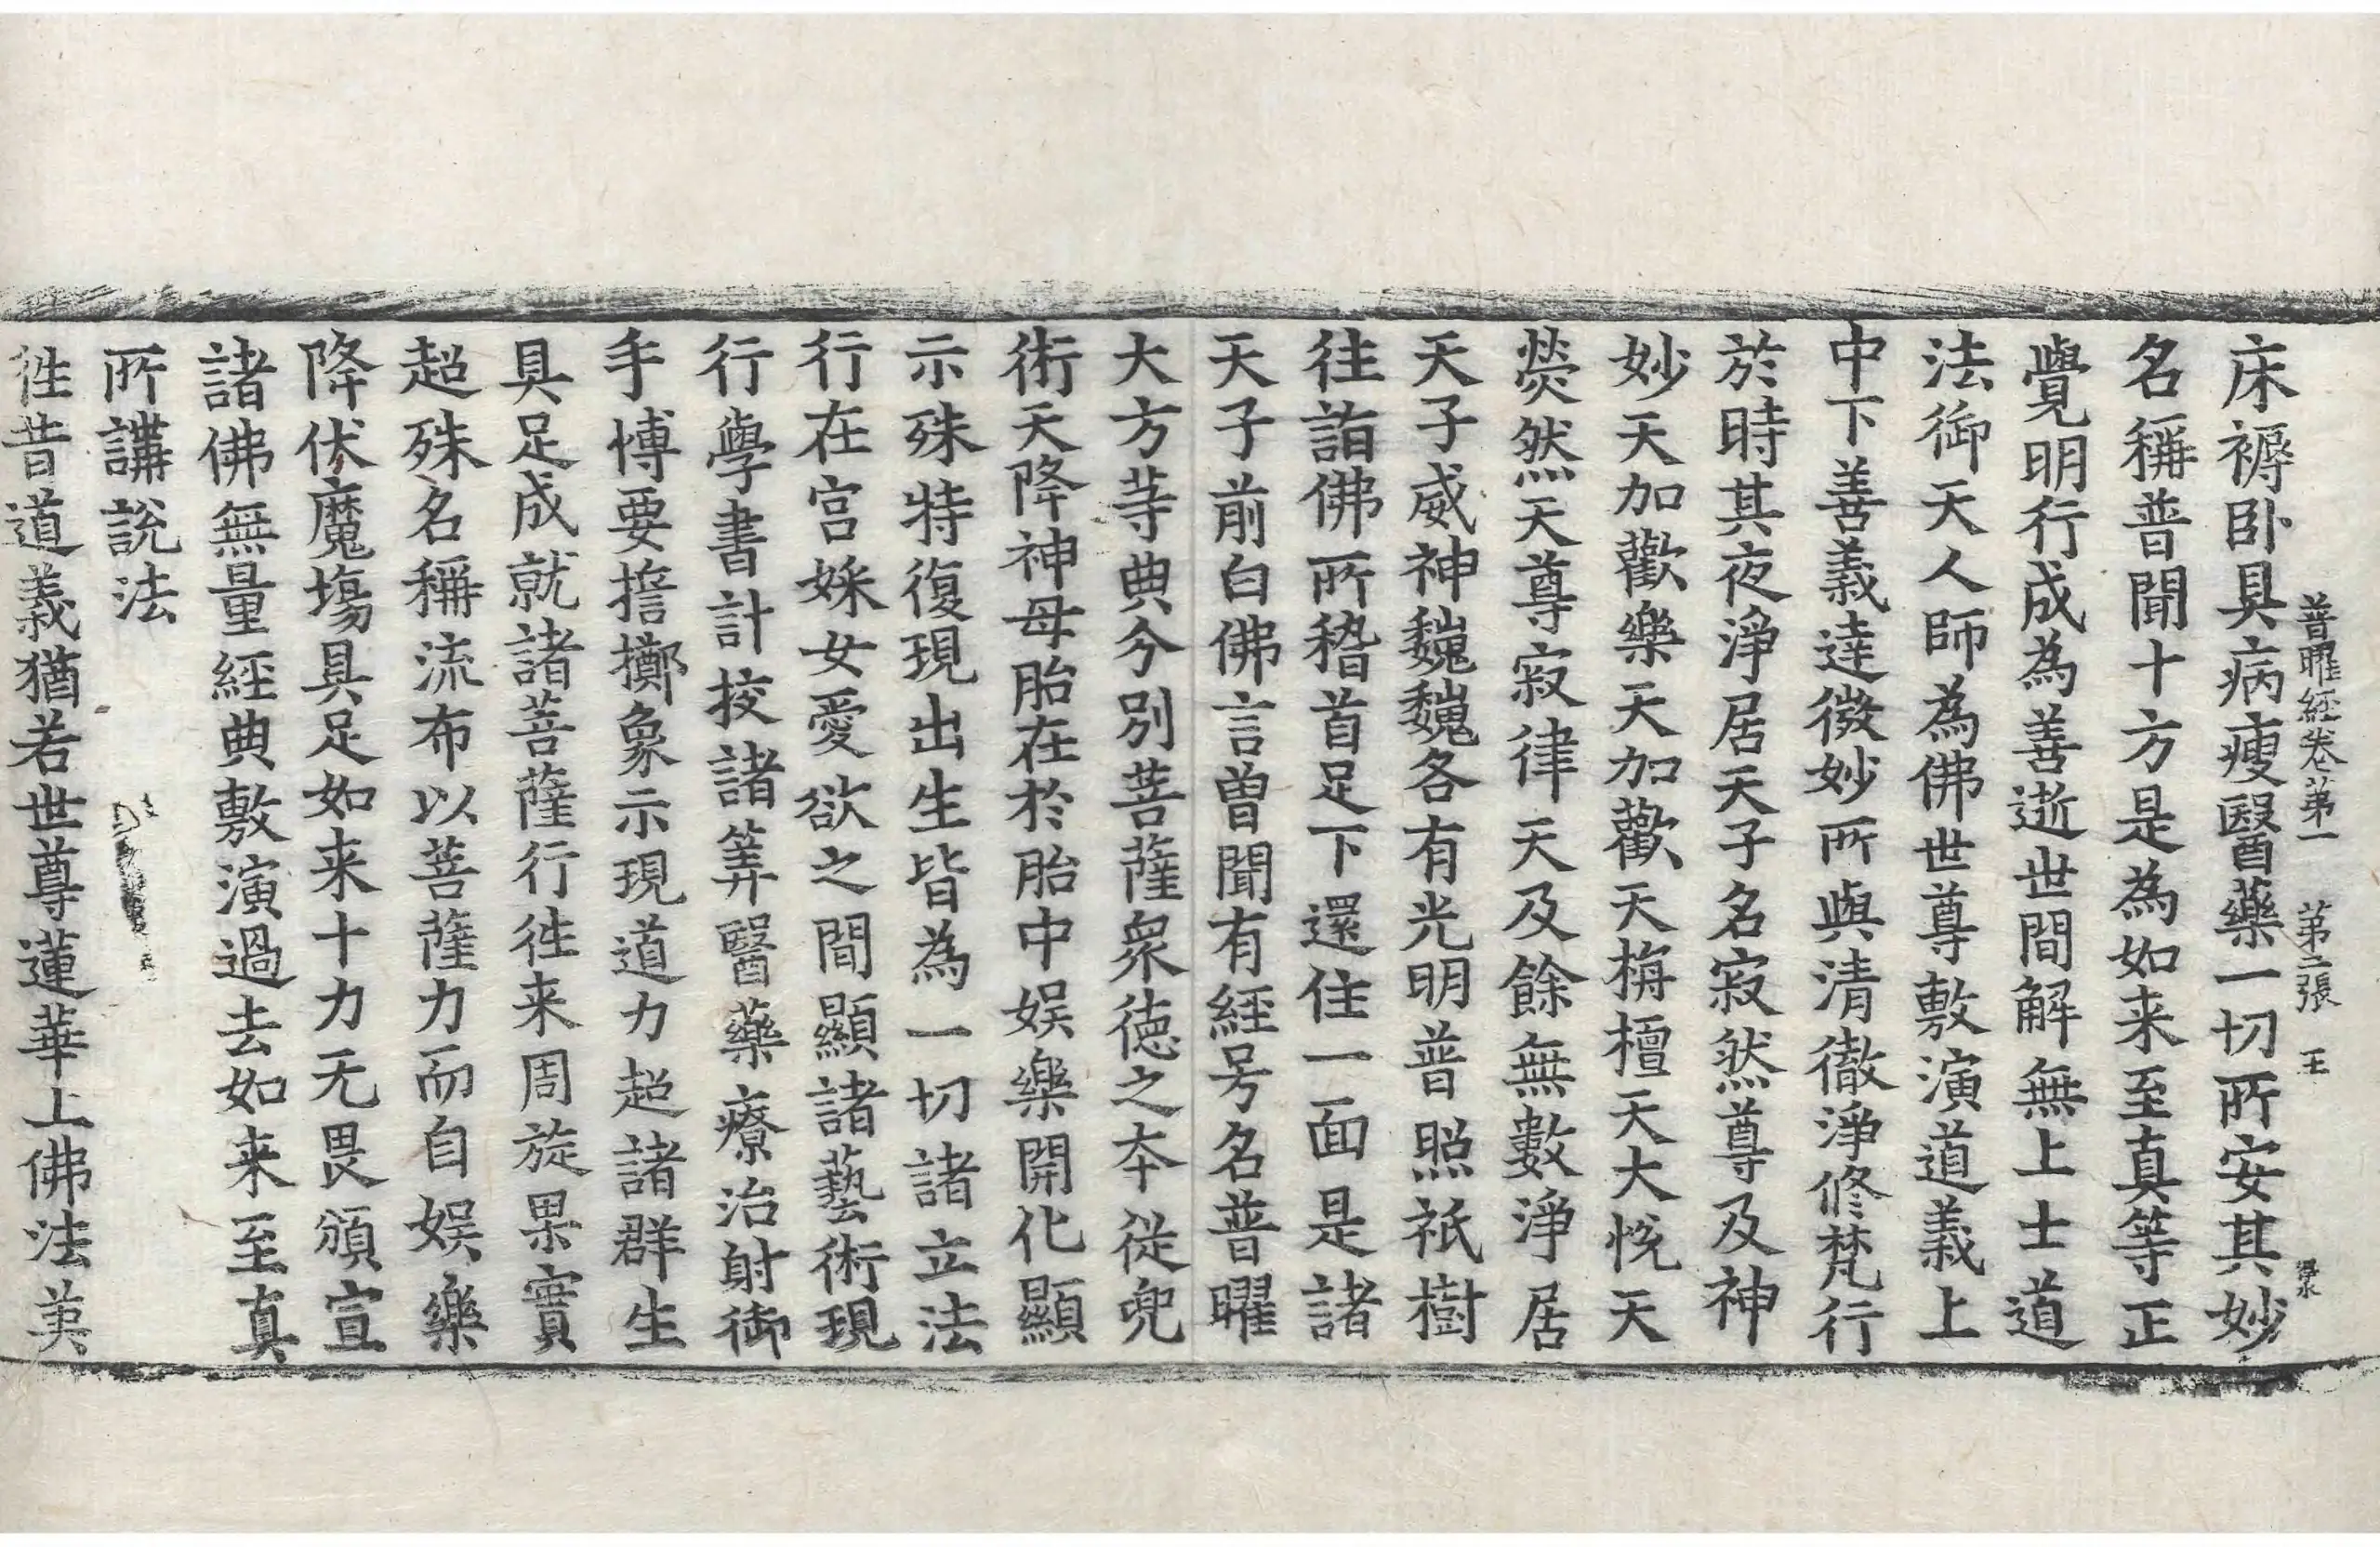 普曜經卷第一 第二張 王
床褥卧具病瘦醫藥一切所安其妙
名稱普聞十方是為如来至真等正
覺明行成為善逝世間解無上士道
法御天人師為佛世尊敷演道義上
中下善義達微妙所與清徹淨修梵行
於時其夜淨居天子名寂然尊及神
妙天加歡樂天加歡天栴檀天大悅天
熒然天尊寂律天及餘無數淨居
天子威神巍巍各有光明普照祇樹
往詣佛所稽首足下還住一面是諸
天子前白佛言曽聞有經号名普曜
大方等典今別菩薩衆德之夲從兜
術天降神母胎在於胎中娯樂開化顯
示殊特復現出生皆為一切諸立法
行在宮婇女愛欲之間顯諸藝術現
行學書計挍諸筭醫藥療治射御
手愽要擔擲象示現道力超諸群生
具足成就諸菩薩行徃来周旋果實
超殊名稱流布以菩薩力而自娯樂
降伏魔塲具足如来十力无畏頒宣
諸佛無量經典敷演過去如来至真
所講說法
徃昔道義猶若世尊蓮華上佛法英